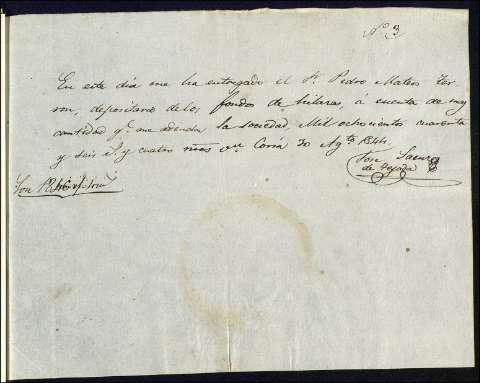 Nº 3
En este dia me ha entregado el Sr. Pedro Mateo Fer
ron, depositario de los fondos de hilaras, á cuenta de may
cantidad qe. me adeuda la sociedad, Mil ochocientos cuarenta
y seis rs. y cuatro mrs vn. Coria 30 Agto 1844
José Saenz
de Tejada
Son 1846 rs. 4 mrs